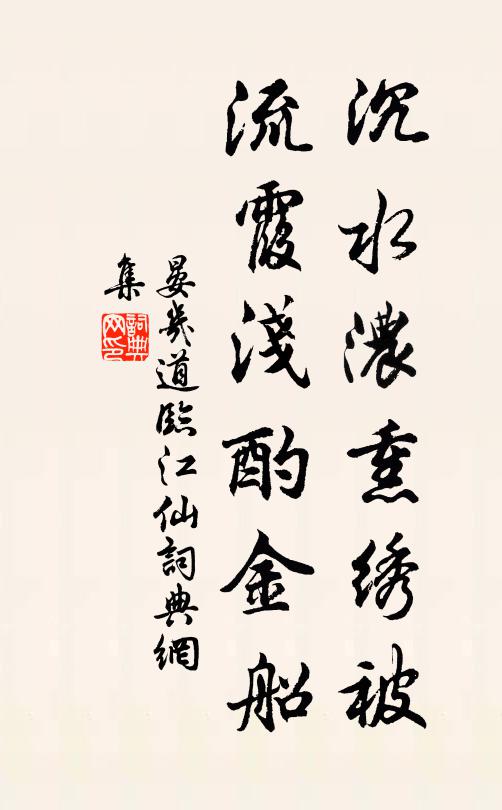 沉水濃熏绣被
流霞淺酌金船
晏幾道臨江仙詞典網
集
詞典网印